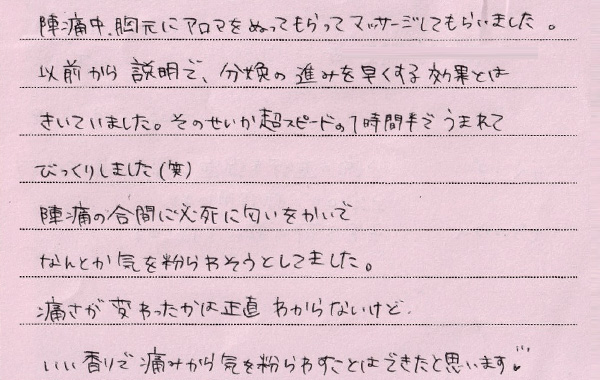 陣痛中、胸元にアロマをぬってもらってマッサージしてもらいました。
以前から説明で、分娩の進みを早くする効果とは
きいていました。そのせいか超スピードの1時間半でうまれて
びっくりしました(笑)
陣痛の合間に必死に匂いをかいで
なんとか気を粉らわそうとしてました。
痛さが変わったかは正直わからないけど、
いい香りで痛みから気を粉らわすことはできたと思います